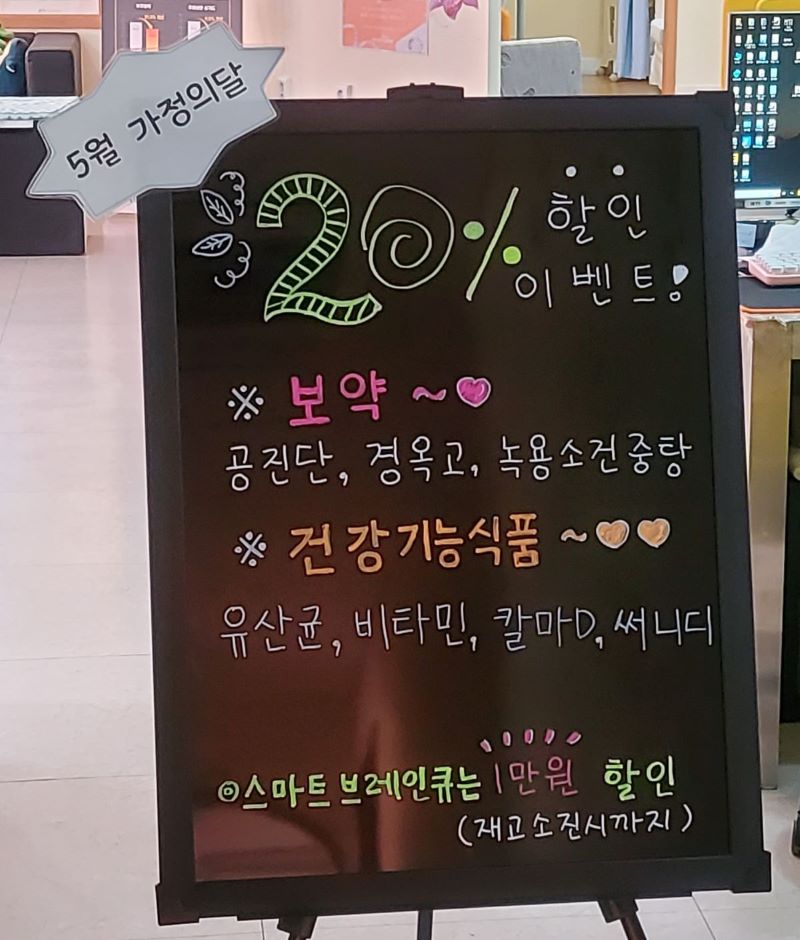 5월 가정의달
20% 할인
이벤트!
※ 보약 ~♡
공진단, 경옥고, 녹용소건중탕
※ 건강기능식품 ~♡♡
유산균, 비타민, 칼마D, 써니디
◎스마트 브레인큐는 1만원 할인
(재고소진시까지)